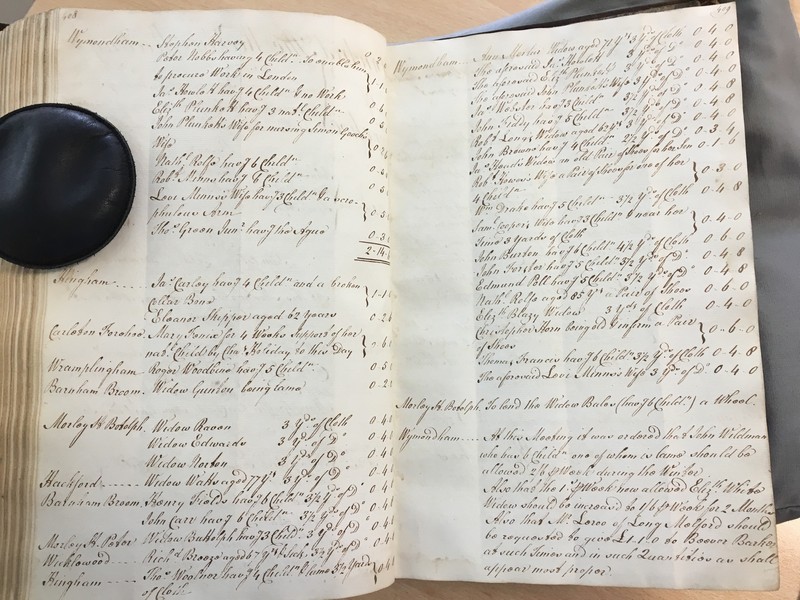 408
Wymondham --- Stephen Harvey
Peter Nobbs having 4 Child.n To enable him
to procure Work in London
Ja.s Howlett hav.g 4 Child.n & no Work
Eliz.th Plunkett hav.g 3 nat.l Child.n
John Plunketts Wife for nursing Simon Goochs
Wife
Nath.l Rolfe hav.g 6 Child.n
Rob.t Minns hav.g 6 Child.n
Love Minns's Wife hav.g 3 Child.n & a scro-
phulous Arm
Tho.s Green Jun.r hav.g the Ague
2-14-
Hingham ---- Ja.s Carley hav.g 4 Child.n and a broken
Collar Bone
Eleanor Skipper aged 62 years
Carleton Forehoe Mary for 4 Weeks Support of her
nat.l Child by Cha.s Holiday to this Day
Wramplingham Roger Woodine hav.g 5 Child.n
Barnham Broom Widow Gunton being lame
Morley St. Botolph Widow Raven 3 y.ds of Cloth 0-4
Widow Edwards 3 y.ds of D.o 0-4
Widow Norton 3 y.ds of D.o 0-4
Hackford ----- Widow Watts aged 77 y.rs 3 y.ds of D.o 0-4
Barnham Broom Henry Fields hav.g 6 Child.n 3½ y.ds of D.o 0-4
John Carr hav.g 6 Child.n 3½ y.ds of D.o 0-4
Morley St. Peter Widow Buttolph hav.g 3 Child.n 3½ y.ds of D.o 0-4
Wicklewood --- Rich.d Breeze aged 67 y.rs & sick 3½ y.ds of D.o 0-4
Hingham ---- Tho.s Woolnor hav.g 4 Child.n & lame 3½ Yards
of Cloth 0-4
409
Wymondham --- Ann Widow aged 71 y.rs 3 y.ds of Cloth 0-4-0
The aforesaid Ja.s Howlett 3 y.ds of D.o 0-4-0
The aforesaid Eliz.th Plunkett 3 y.ds of D.o 0-4-0
The aforesaid John Plunketts Wife 3 y.ds of D.o 0-4-0
Ja.s Webster hav.g 3 Child.n 3½ y.ds of D.o 0-4-8
John Tiddy hav.g 5 Child.n 3½ y.ds of D.o 0-4-8
Rob.t Long Widower aged 62 y.rs 3 y.ds of D.o 0-4-0
John Browne hav.g 4 Child.n 2½ y.ds of D.o 0-3-4
Ja.s Widow an old Pair of Shoes for her Son 0-1-6
Rob.t Wife a Pair of Shoes for one of her
4 Child.n 0-3-0
W.m Drake hav.g 5 Child.n 3½ y.ds of Cloth 0-4-8
Sam.l Cooper's Wife hav.g 3 Child.n & near her
time 3 yards of Cloth 0-4-0
John Burton hav.g 6 Child.n 4½ y.ds of Cloth 0-6-0
John Forster hav.g 5 Child.n 3½ y.ds of D.o 0-4-8
Edmund Bell hav.g 5 Child.n 3½ y.ds of D.o 0-4-8
Nath.l Rolfe aged 85 y.rs a Pair of Shoes 0-6-0
Eliz.th Blazy Widow 3 y.ds of Cloth 0-4-0
Christopher Horn being old & infirm a Pair
of Shoes 0-6-0
Thomas Frances hav.g 6 Child.n 3½ y.ds of Cloth 0-4-8
The aforesaid Love Minns's Wife 3 y.ds of D.o 0-4-0
Morley St. Botolph To lend the Widow Bales (hav.g 6 Child.n) a Wheel.
Wymondham --- At this Meeting it was ordered that John Wildman
who has 6 Child.n one of whom is lame should be
allowed 2/6 ⅌ Week during the Winter
Also that the 1s. ⅌ Week now allowed Eliz.th White
Widow should be increased to 1/6 ⅌ Week for 2 Months
Also that Mr. Laroo of Long Melford should
be requested to give £1-1-0 to Beever Barker
at such Times and in such Quantities as shall
appear most proper.